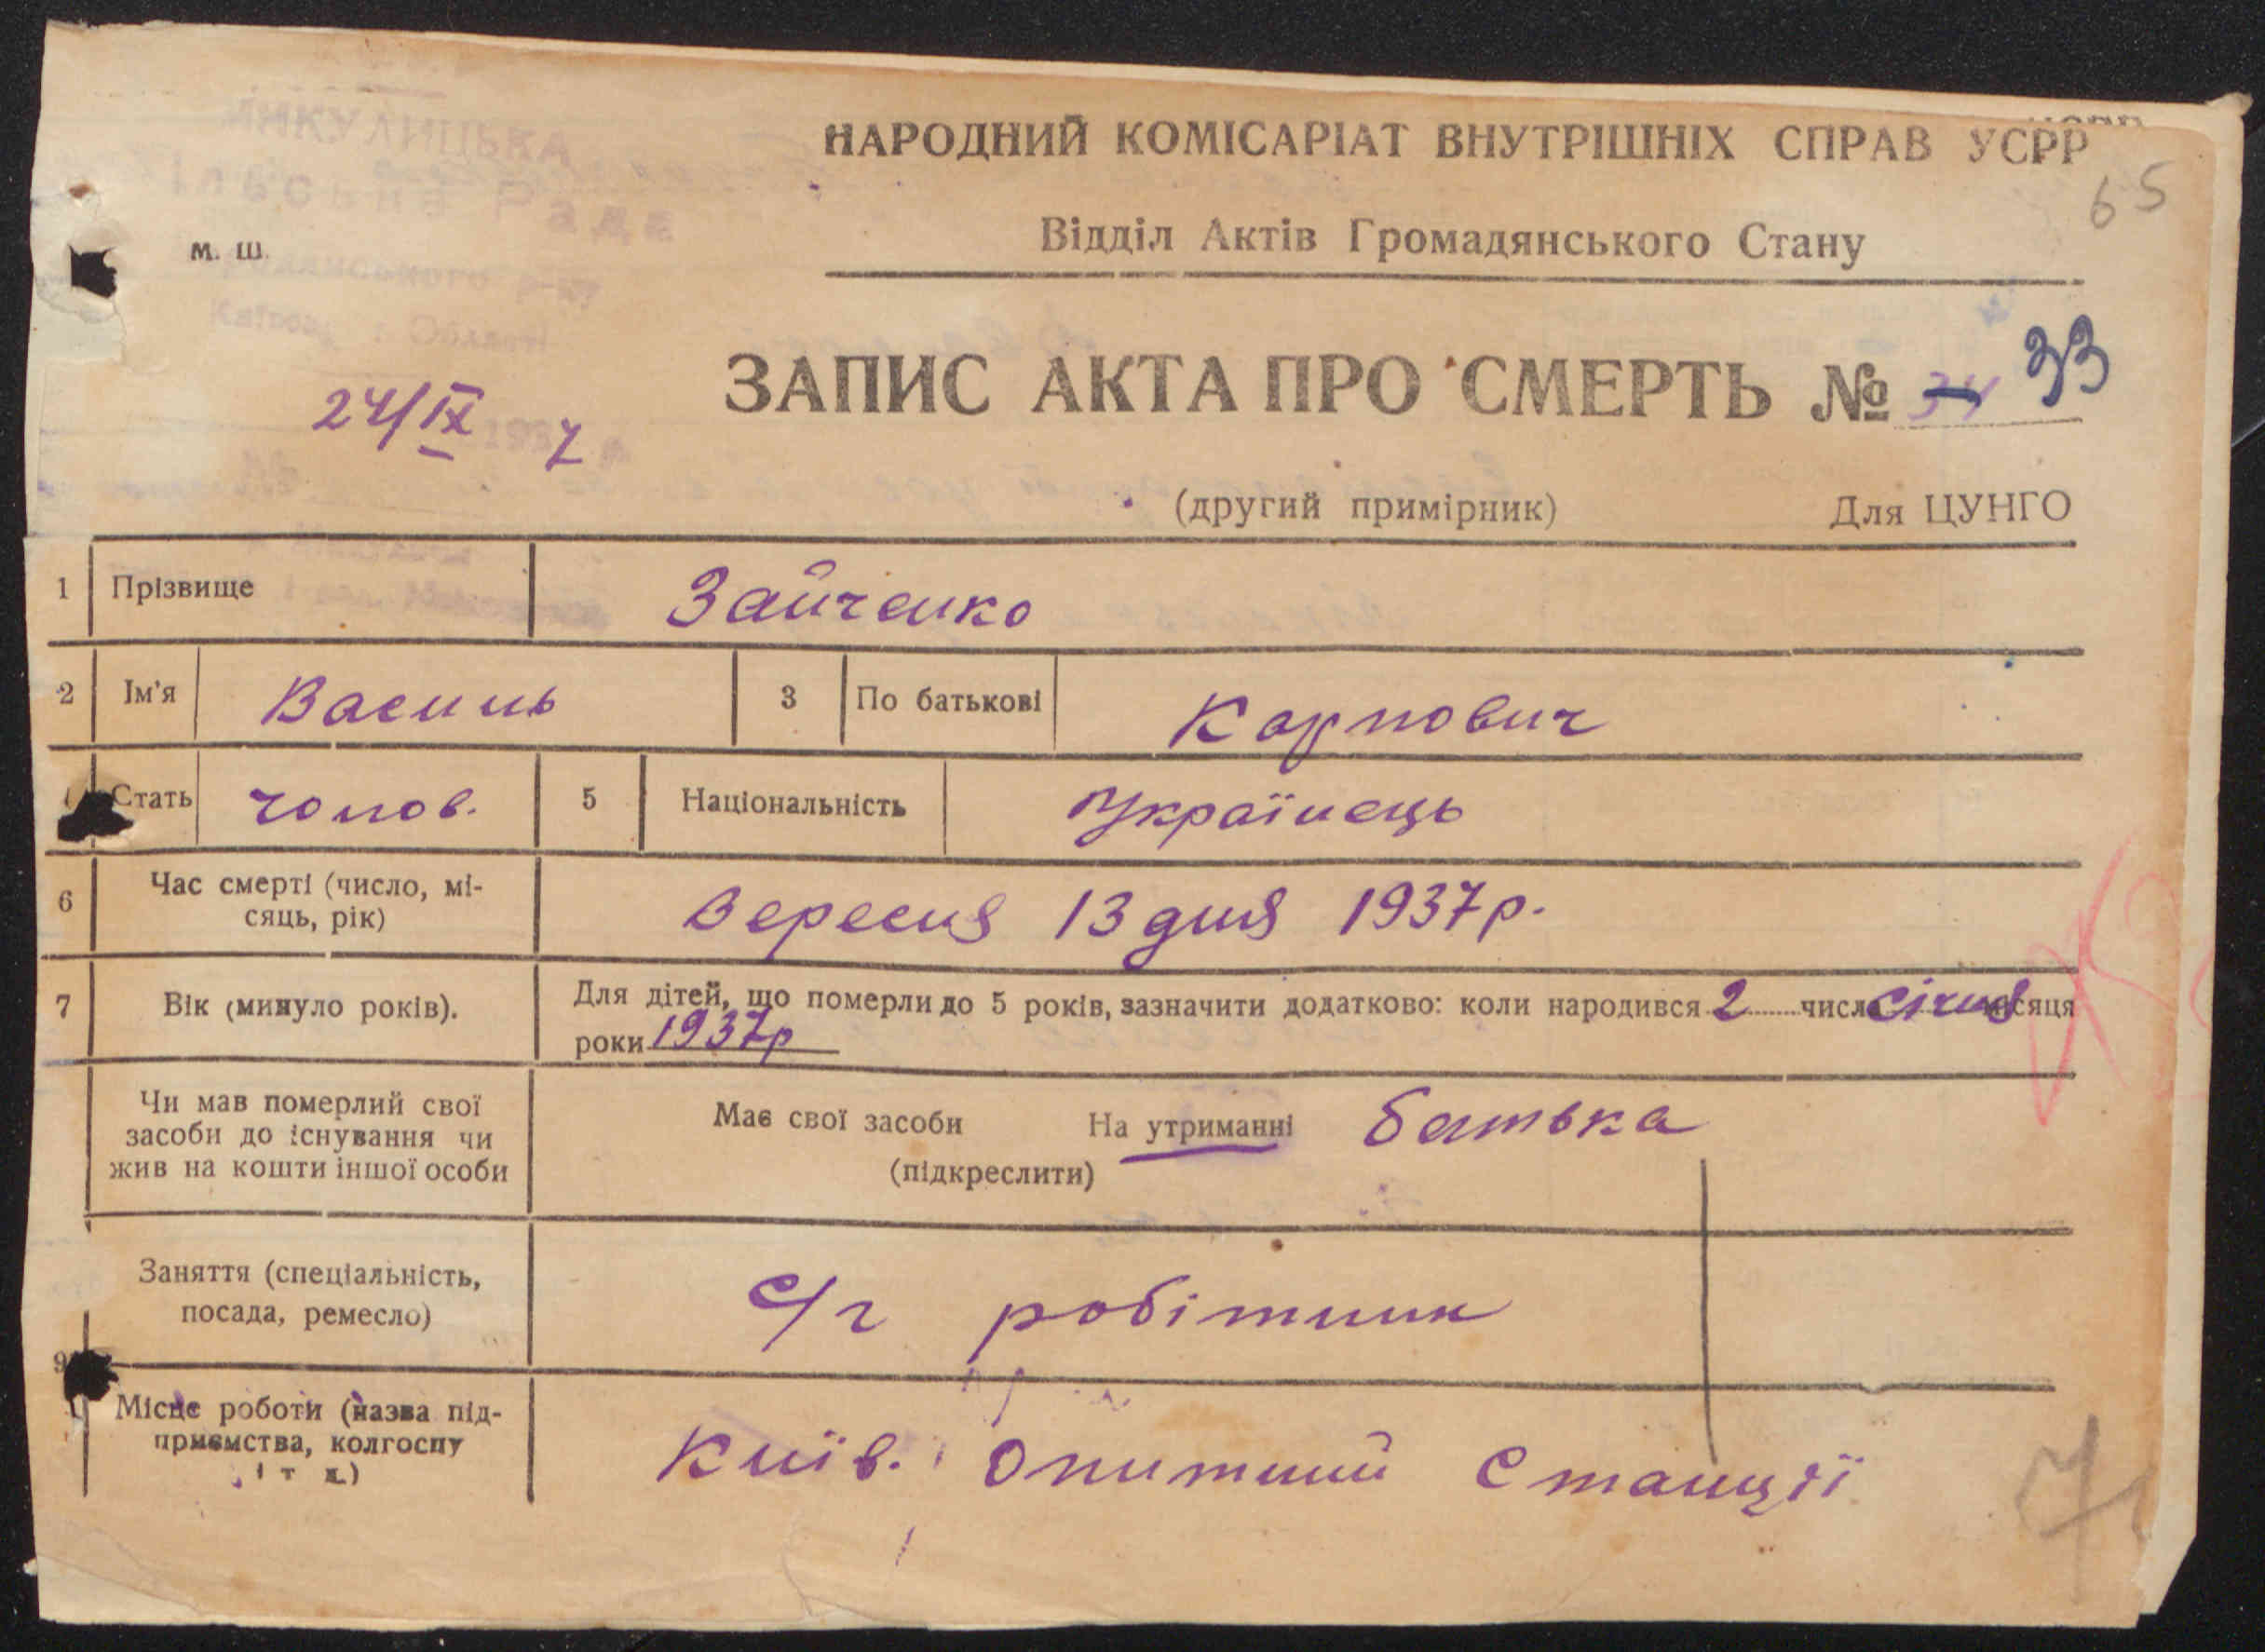 МИКУЛИЦЬКА
Рада
НАРОДНИЙ КОМІСАРІАТ ВНУТРІШНІХ СПРАВ УСРР
65
Відділ Актів Громадянського Стану
м. ш.
Області
ЗАПИС АКТА ПРО СМЕРТЬ № 34 33
24/IX 1937 р.
(другий примірник) Для ЦУНГО
1 Прізвище Зайченко
2 Ім'я Василь 3 По батькові Карпович
Стать чолов. 5 Національність Українець
6 Час смерті (число, мі-
сяць, рік) Вересня 13 дня 1937 р.
7 Вік (минуло років). Для дітей, що померли до 5 років, зазначити додатково: коли народився 2 числа січня місяця
роки 1937р
Чи мав померлий свої
засоби до існування чи
жив на кошти іншої особи
Має свої засоби На утриманні батька
(підкреслити)
Заняття (спеціальність,
посада, ремесло) с/г робітник
9
Місце роботи (назва під-
приємства, колгоспу
і т д.) Київ. Опитний Станції